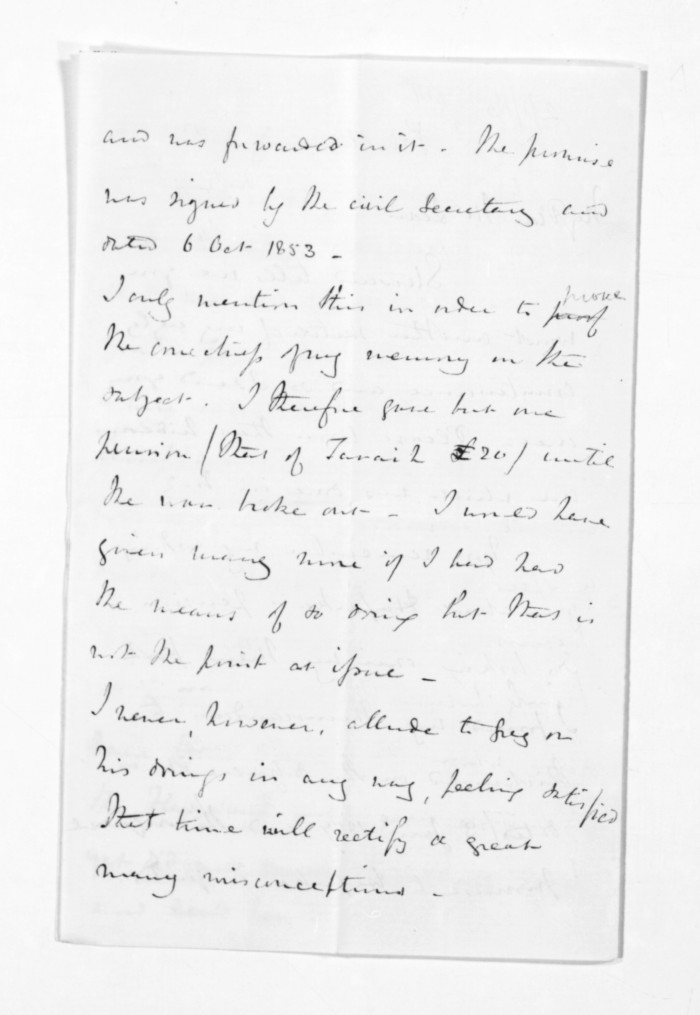 and was forwarded in it - The promise
was signed by the civil Secretary and
dated 6 Oct 1853 -
I only mention this in order to proof prove
the correctness of my memory on the
subject. I therefore gave but one
pension (that of Taraia £20) until
the war broke out - I would have
given many more if I had had
the means of so doing but that is
not the point at issue -
I never, however, allude to Grey or
his doings in any way, feeling satisfied
that time will rectify a great
many misconceptions -